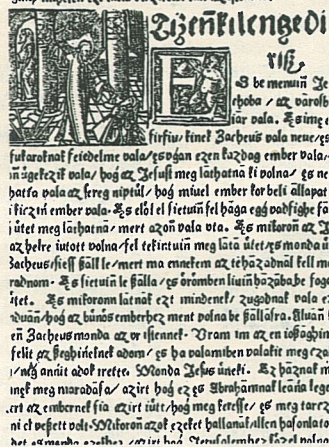 Tizeñkilengedi
riß
S be menuin Je
choba / az város
iar vala. Es ime e
firfiu / kinek Zacheus vala neue / es
fukaroknak feiedelme vala / es ugan ezen kazdag ember vala.
ñ igekezik vala / hog az Jesust meg lathatna ki volna / es ne
hatta vala az sereg niptül / hog miuel ember kor beli allapat
i kiczin ember vala. Es elöl el sietuin fel haga egg vadfighe fa
j ütet meg lathatna / mert azon vala uta. Es mikoron az J
az helre iutott volna / fel tekintuin meg lata ütet / es monda n
Zacheus / siess ßall le / mert ma ennekem az te hazadnal kell m
radnom. Es sietuin le ßalla / es örömben liuin hazaba be foga
ütet. Es mikoronn latnak ezt mindenek / zugodnak vala ez
duan / hog az bünös emberhez ment volna be ßallasra. Aluan
en Zacheus monda az vr istennek. Vram im az en iosagim
felit az ßeghineknek adom / es ha valamiben valakit meg cza
i / nég annit adok irette. Monda Jesus üneki. Ez haznak m
inek meg maradasa / azirt hog ez es Abrahamnak leana lege
ert az embernek fia azirt iütt / hog meg keresse / es meg tarcz
ni el veßett volt. Mikoron azok ezeket hallanak / illen hasonlato